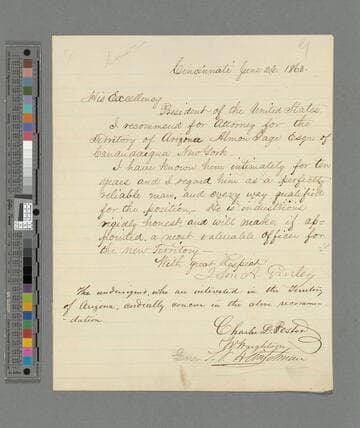 Cincinnati June 24. 1863.
His Excellency
President of the United States
I recommend for Attorney for the
Territory of Arizona Almon Gage Esqr. of
Canandaigua New York.
I have known him intimately for ten
years and I regard him as a perfectly
reliable man, and every way qualified
for the position. He is industrious
rigidly honest and will make, if ap-
pointed, a most valuable officer for
the new Territory.
With great respect
John A. Gurley
The undersigned, who are interested in the Territory
of Arizona, cordially concur in the above recommen-
dation
Charles D. Poston